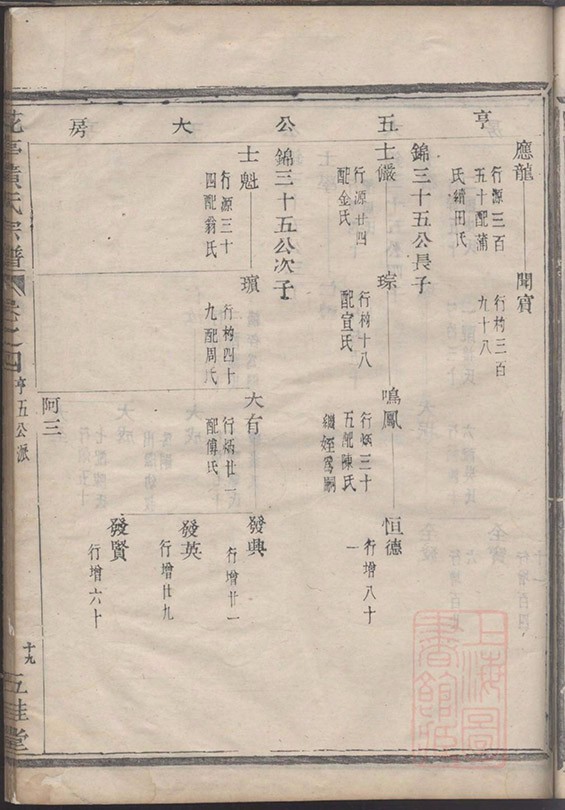 亨五公大房
應龍
行源三百
五十配蒲
氏續田氏
聞賓
行杓三百
九十八
錦三十五公長子
士儼
行源廿四
配金氏
琮
行杓十八
配宣氏
鳴鳳
行炳三十
五配陳氏
繼姪爲嗣
恒德
行增八十
一
錦三十五公次子
士魁
行源三十
四配翁氏
璸
行杓四十
九配周氏
大有
行炳廿二
配傅氏
發興
行增廿一
發英
行增廿九
發賢
行增六十
阿三
黃氏宗譜
卷之四
亨五公派
十九
五桂堂
上海圖書館